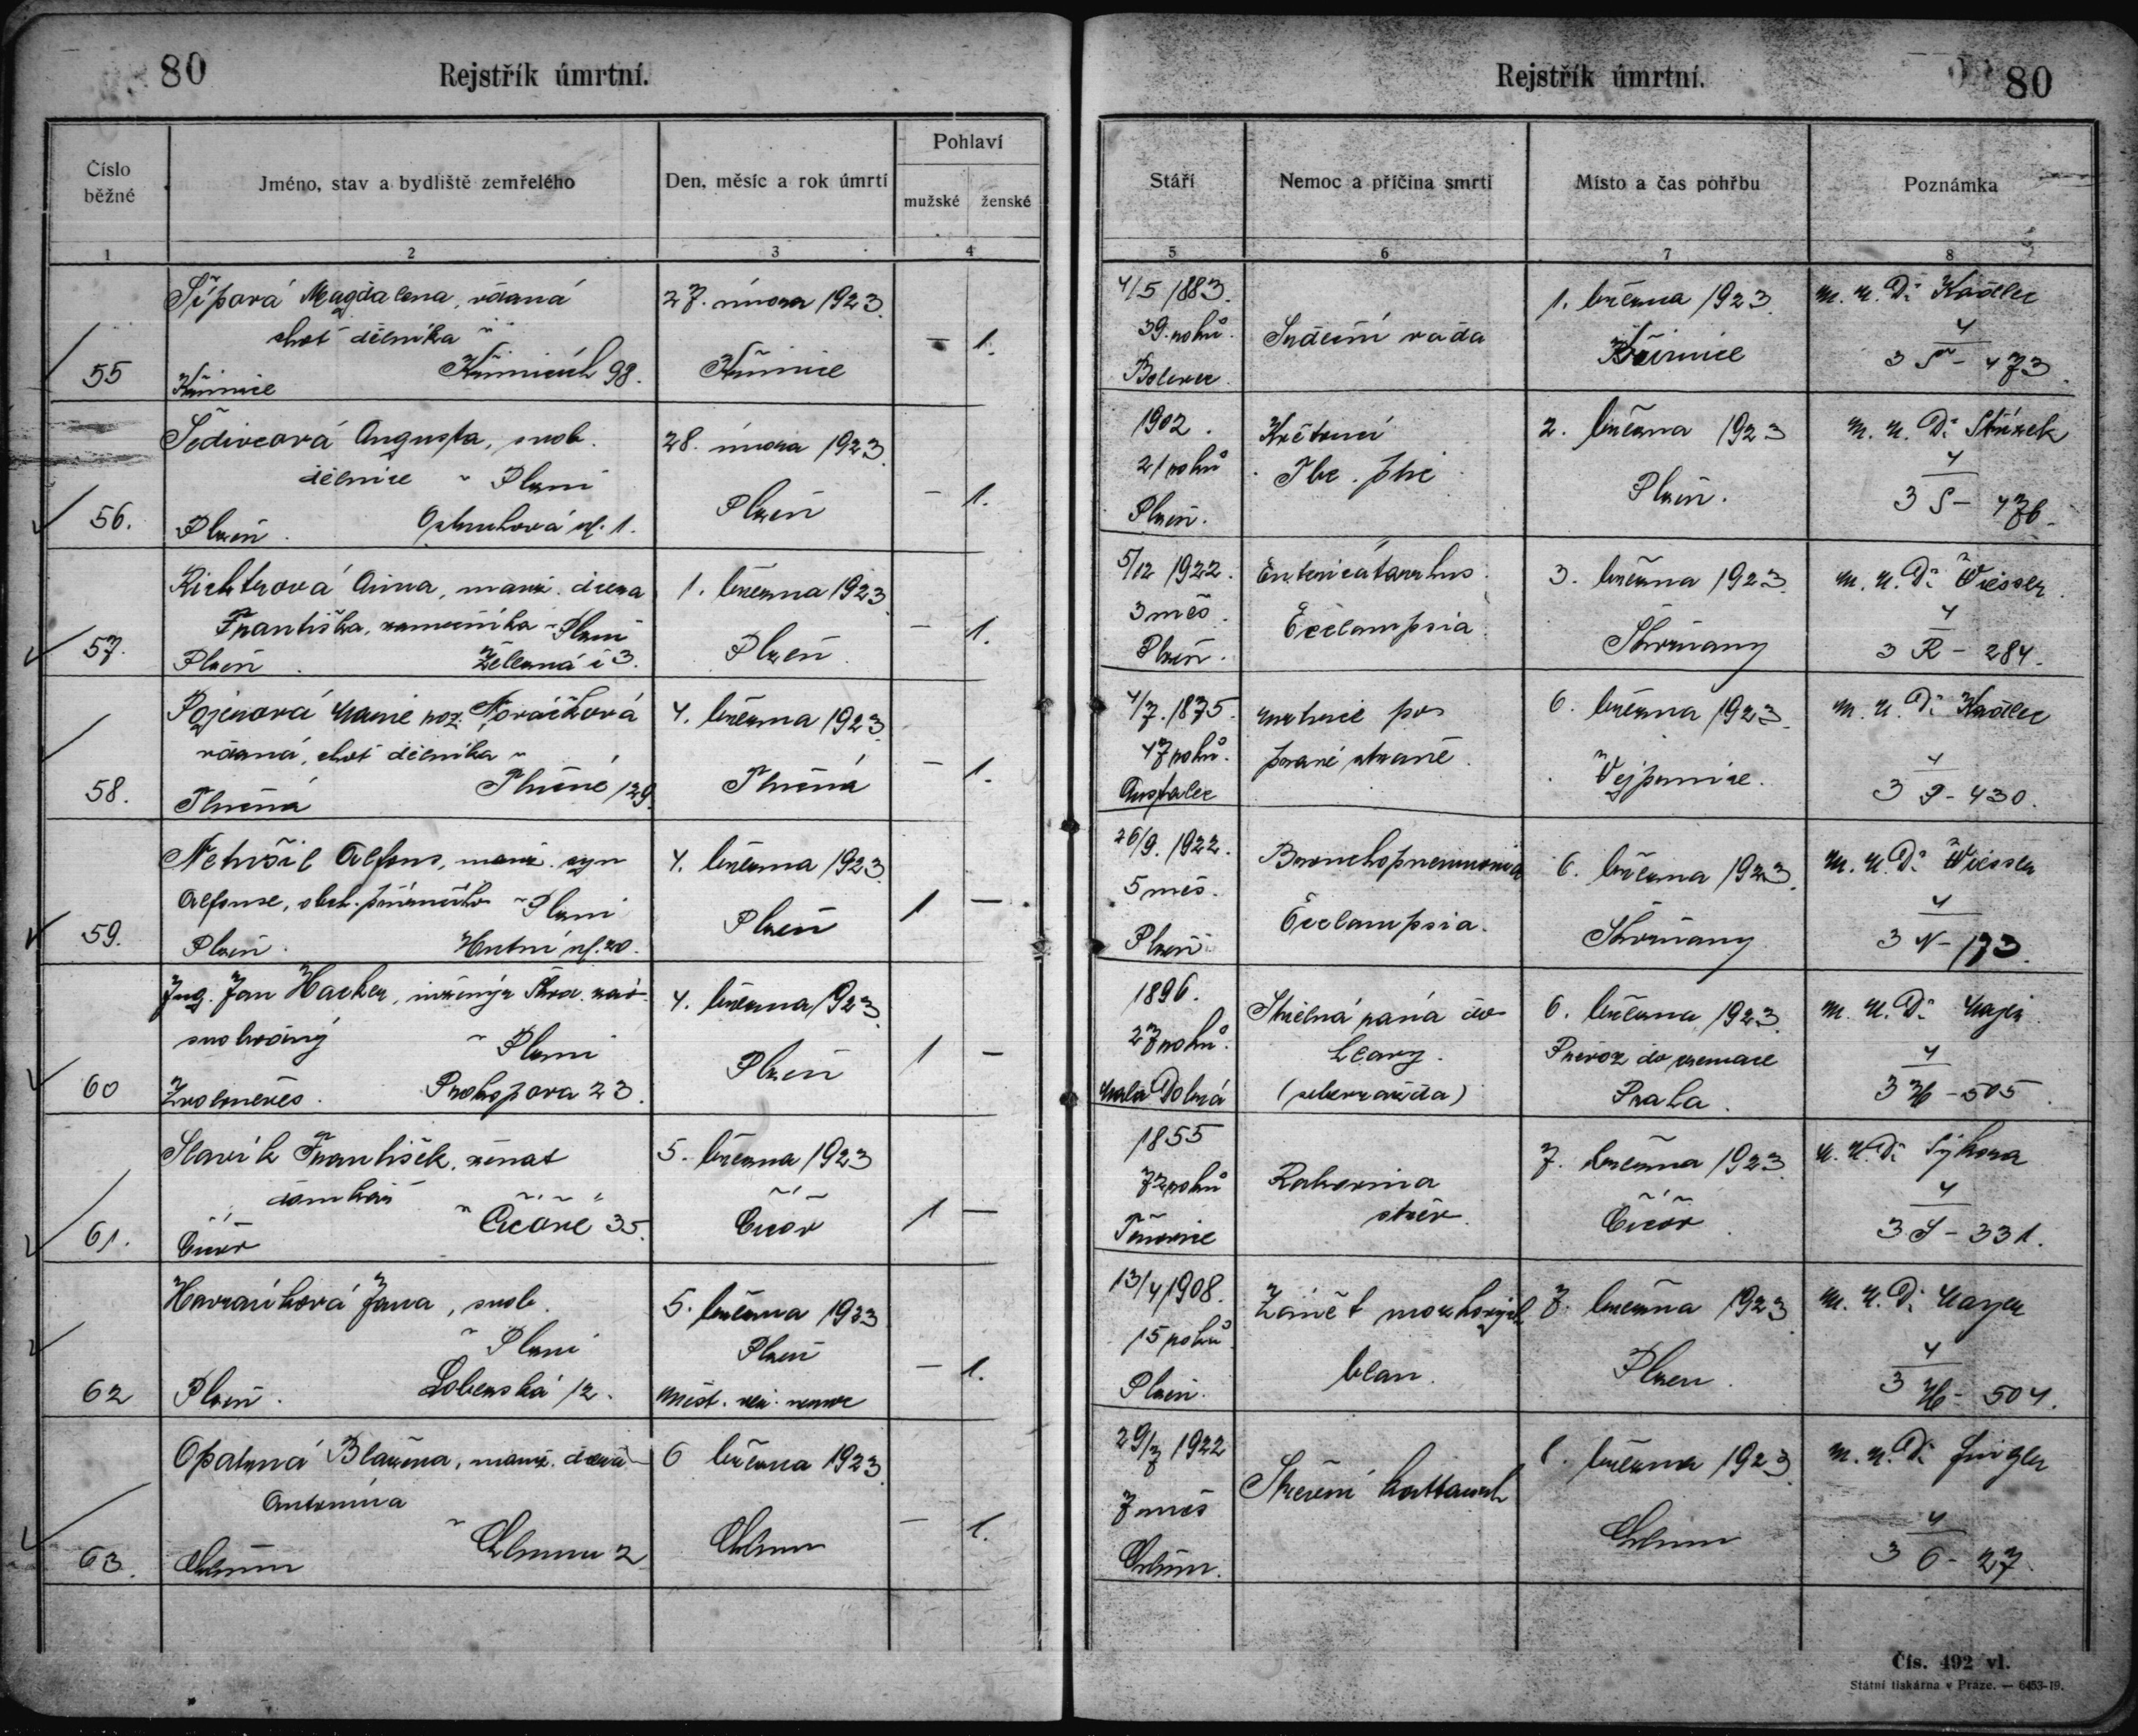 80
Rejstřík úmrtní.
Číslo běžné
Jméno, stav a bydliště zemřelého
Den, měsíc a rok úmrtí
Pohlaví
mužské
ženské
1
2
3
4
55
Šípová Magdalena, vdaná
choť dělníka v
Křimicích 98.
Křimice
27. února 1923.
Křimice
—
1.
56.
Šedivcová Augusta, svob.
dělnice v Plzni
Plzeň.
28. února 1923.
Plzeň
—
1.
57.
Richtrová Anna, manž. dcera
Františka, zámečníka v Plzni
Plzeň. Železná č 3.
1. března 1923
Plzeň.
—
1.
58.
Pojerová Marie roz. Nováčková
vdaná, choť dělníka v
Tlučné 129.
Tlučná
4. března 1923
Tlučná
—
1.
59.
Netušil Alfons, manž. syn
Alfonse, obch. příručího v Plzni
Plzeň. Hutní ul. 20.
4. března 1923
Plzeň
1
—
60
Ing. Jan Hacker, inženýr Škod. záv.
svobodný v Plzni
Prokopova 23.
4. března 1923
Plzeň
1
—
61.
Slavík František, ženat
domkář
v Čičoře 35.
Čičov
5. března 1923
Čičov
1
—
62
Havránková Jana, svob.
v Plzni
Plzeň. Lobezská 12.
5. března 1923
Plzeň
měst. nemoc
—
1.
63.
Opatrná Blažena, manž. dcera
Antonína
v Chlumu 2
Chlum
6 března 1923
Chlum
—
1.
Rejstřík úmrtní.
80
Stáří
Nemoc a příčina smrti
Místo a čas pohřbu
Poznámka
5
6
7
8
4/5 1883.
39. roků.
Bolevec.
Srdeční vada
1. března 1923.
Křimice
M. U. Dr Kadlec
4
3 Š - 473.
1902.
21 roků
Plzeň.
Tbc. plic
2. března 1923
Plzeň.
M. U. Dr
4
3 S - 476.
5/12 1922.
3 měs.
Plzeň.
Entericatarrhus.
Ecclampsia.
3. března 1923.
Skvrňany
M. U. Dr Wiesser.
4
3 R - 284.
4/7. 1875.
47 roků.
mrtvice po
pravé straně.
6. března 1923.
Vejprnice.
M. U. Dr Kadlec
4
3 P - 430.
26/9. 1922.
5 měs.
Plzeň
Bronchopneumonia
Ecclampsia.
6. března 1923.
Skvrňany
M. U. Dr Wiesser
4
3 N - 173.
1896.
27 roků.
Střelná rána do
hlavy.
(sebevražda)
6. března 1923.
Převoz do krematoria
Praha.
M. U. Dr
4
3 H - 505.
1855
72 roků
Rakovina
střev.
7. března 1923
Čičov.
M. U. Dr Sýkora
4
3 S - 331.
13/4 1908.
15 roků
Plzeň.
Zánět mozkových
blan.
7. března 1923
Plzeň.
M. U. Dr Mayer
4
3 H - 504.
29/7 1922
7 měs
Chlum.
Střevní kattarrh
března 1923.
Chlum
M. U. Dr
4
3 O - 27
Čís. 492 vl.
Státní tiskárna v Praze. — 6453-19.